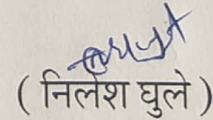 ( निलेश घुले )